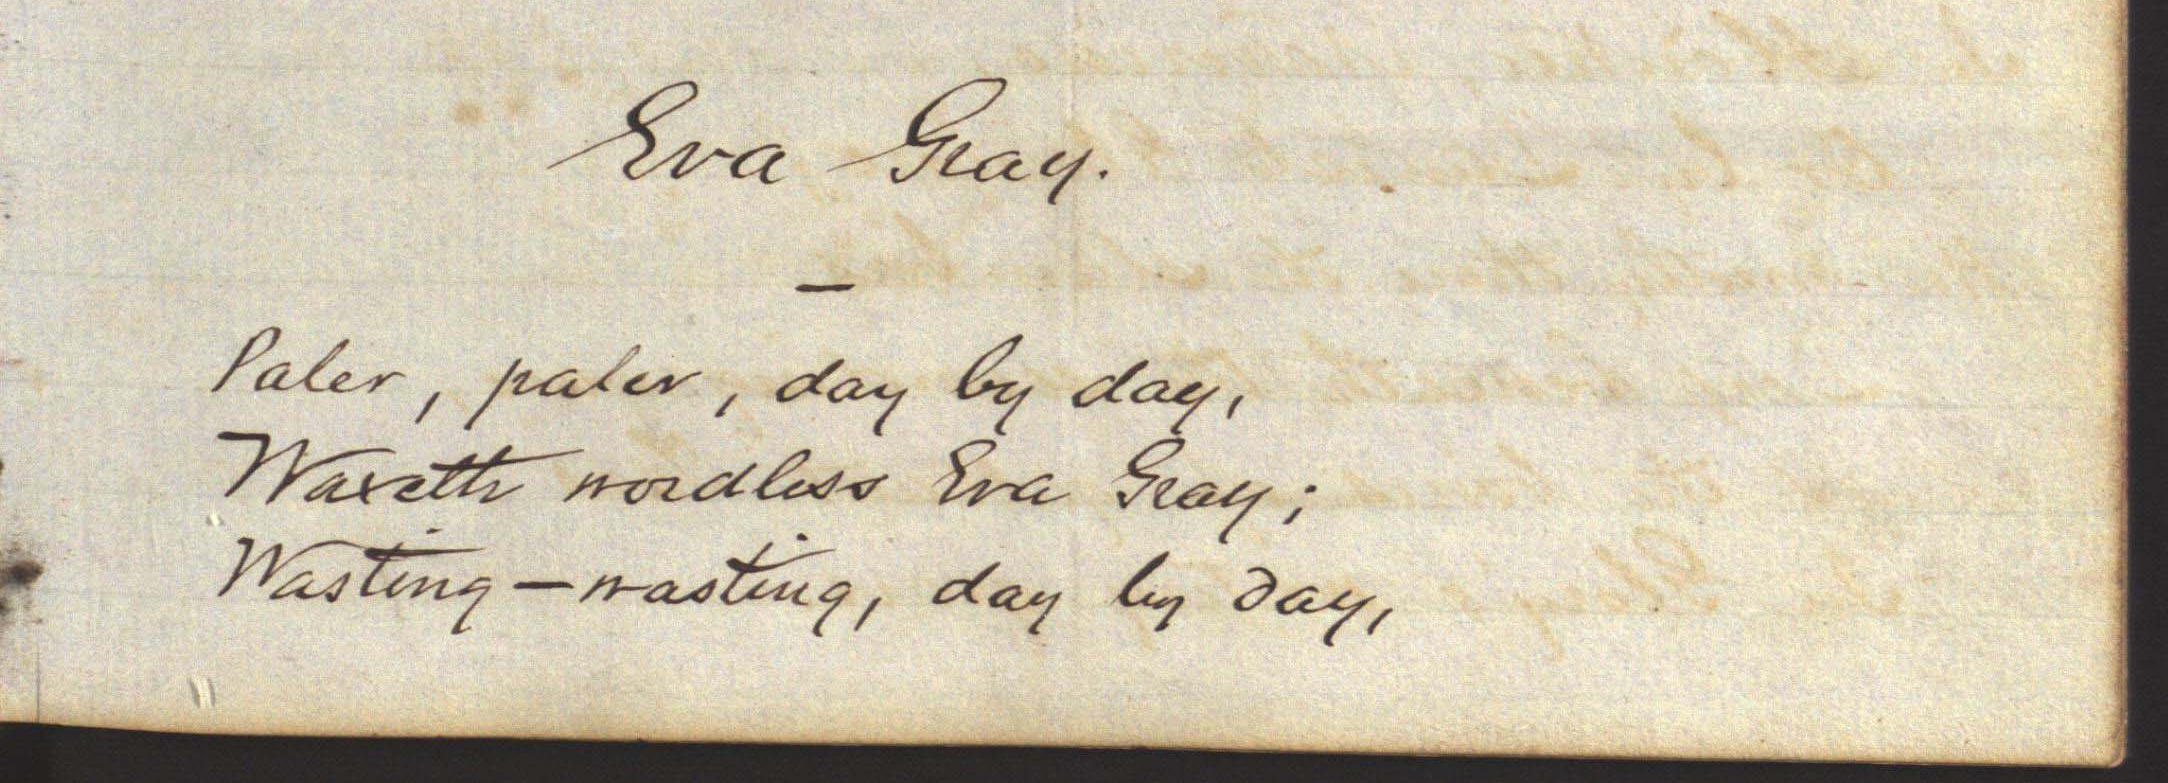 Eva Gray.
—
Paler, paler, day by day,
Waxeth wordless Eva Gray;
Wasting—wasting, day by day,